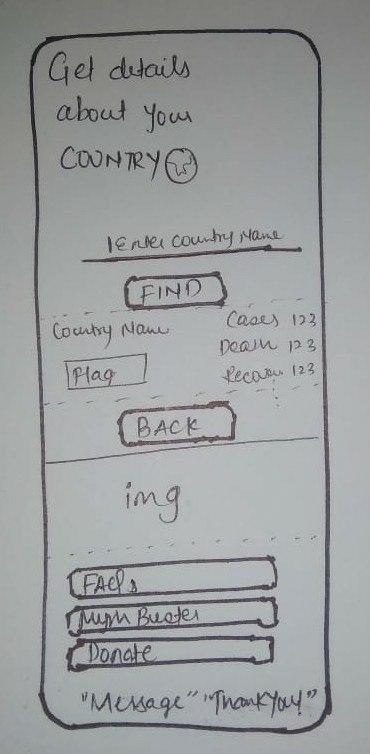 Get details
about your
COUNTRY
Enter Country Name
FIND
Country Name
Cases 123
Death 123
Flag
Recover 123
BACK
img
FAQs
Myth Buster
Donate
"Message" "Thank You!"